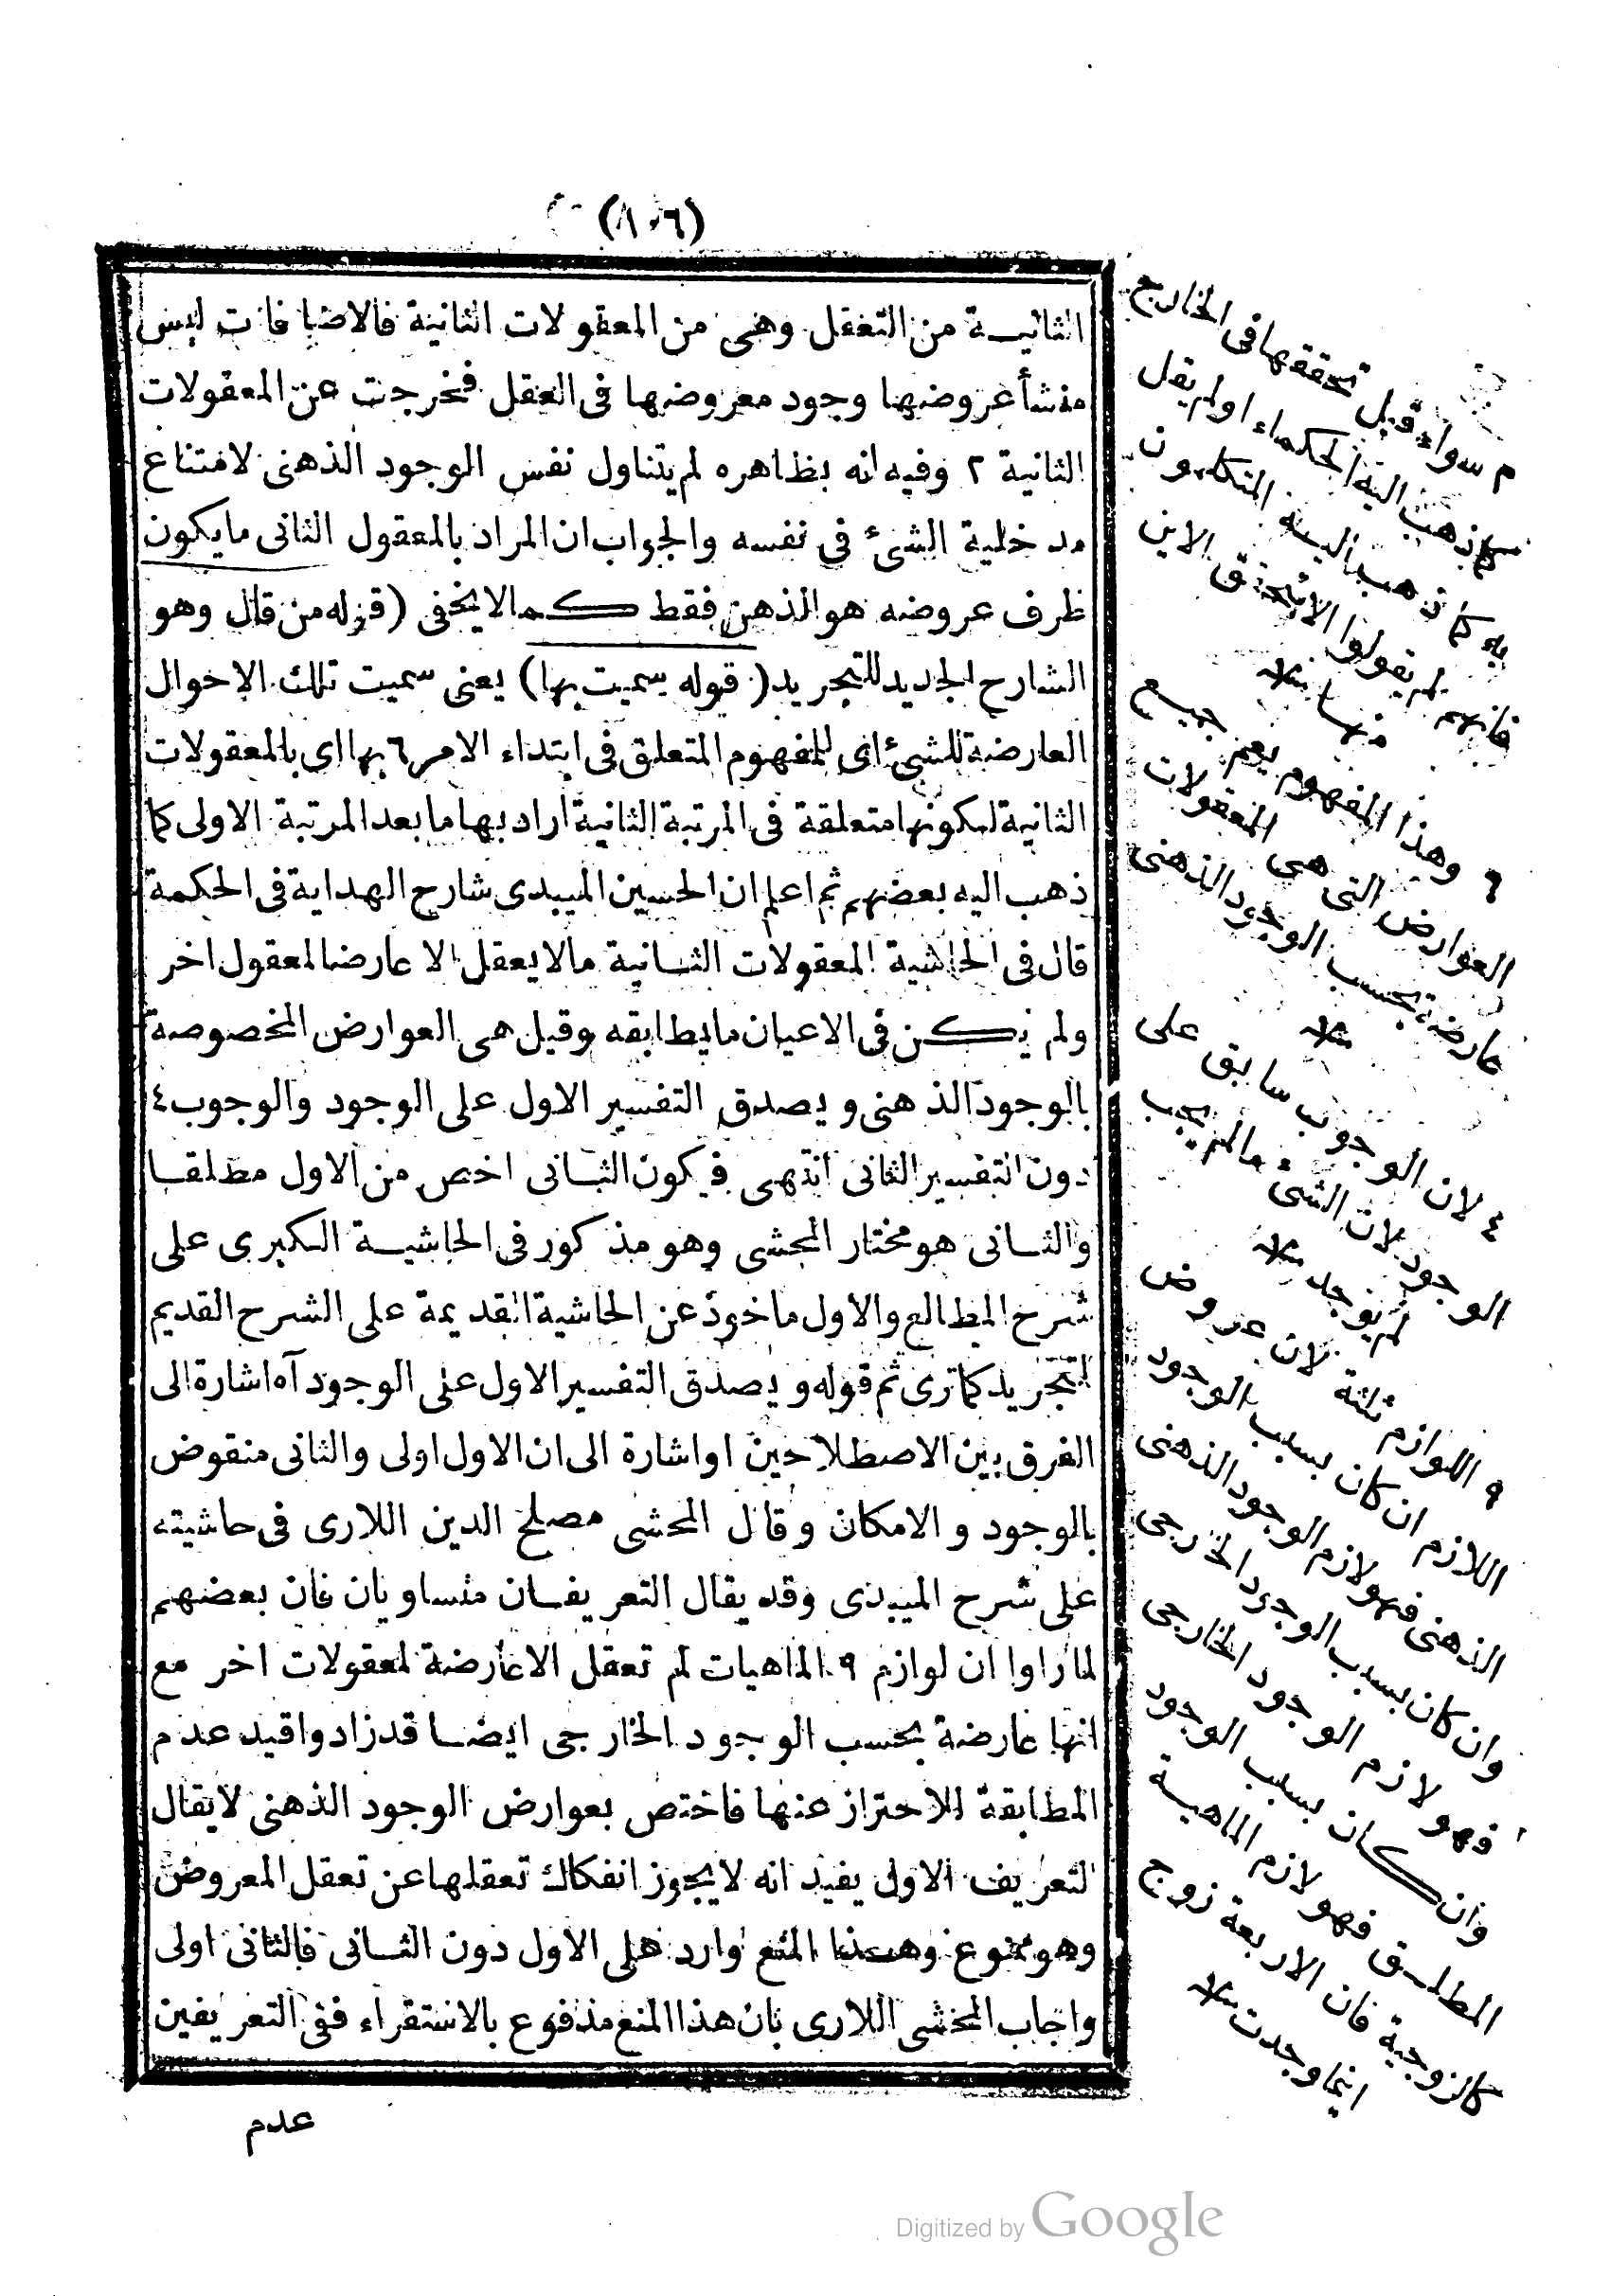 (١٠٦)
الثانيـة من التعقل وهى من المعقولات الثانية فالاضافات ليس
منشأ عروضها وجود معروضها فى العقل فخرجت عن المعقولات
الثانية ٢ وفيه انه بظاهره لم يتناول نفس الوجود الذهنى لامتناع
مدخلية الشئ فى نفسه والجواب ان المراد بالمعقول الثانى ما يكون
ظرف عروضه هو الذهن فقط كما لا يخفى (قوله من قال وهو
الشارح الجديد للتجريد (قوله سميت بها) يعنى سميت تلك الاحوال
العارضة للشئ اى للمفهوم المتعلق فى ابتداء الامر ٦ بها اى بالمعقولات
الثانية لكونها متعلقة فى المرتبة الثانية اراد بها ما بعد المرتبة الاولى كما
ذهب اليه بعضهم ثم اعلم ان الحسين الميبدى شارح الهداية فى الحكمة
قال فى الحاشية المعقولات الثـانية ما لا يعقل الا عارضا لمعقول اخر
ولم يكن فى الاعيان ما يطابقه وقيل هى العوارض المخصوصة
بالوجود الذهنى ويصدق التفسير الاول على الوجود والوجوب ٤
دون التفسير الثانى انتهى فيكون الثـانى اخص من الاول مطلقـا
والثـانى هو مختار المحشى وهو مذكور فى الحاشيـة الكبرى على
شرح المطالع والاول ماخوذ عن الحاشية القديمة على الشرح القديم
للتجريد كما ترى ثم قوله ويصدق التفسير الاول على الوجود آه اشارة الى
الفرق بين الاصطلاحين او اشارة الى ان الاول اولى والثانى منقوض
بالوجود والامكان وقال المحشى مصلح الدين اللارى فى حاشيته
على شرح الميبدى وقد يقال التعريفـان متساويان فان بعضهم
لما راوا ان لوازم ٩ الماهيات لم تعقل الا عارضة لمعقولات اخر مع
انها عارضة بحسب الوجود الخارجى ايضـا قد زادوا قيد عدم
المطابقة للاحتراز عنها فاختص بعوارض الوجود الذهنى لا يقال
التعريف الاول يفيد انه لا يجوز انفكاك تعقلها عن تعقل المعروض
وهو ممنوع وهـذا المنع وارد على الاول دون الثـانى فالثانى اولى
واجاب المحشى اللارى بان هذا المنع مدفوع بالاستقراء ففى التعريفين
عدم
م سواء قيل تحققها فى الخارج
كما ذهب اليه الحكماء او لم يقل
به كما ذهب اليـه المتكلمون
فانهم لم يقولوا الا بتحقق الاين
منهـا منه
٦ وهذا المفهوم يعم جميـع
العوارض التى هى المعقولات
عارضة بحسب الوجود الذهنى
منه
٤ لان الوجوب سابق على
الوجود لان الشئ ما لم يجب
لم يوجد منه
٩ اللوازم ثلثة لان عروض
اللازم ان كان بسبب الوجود
الذهنى فهو لازم الوجود الذهنى
وان كان بسبب الوجود الخارجى
فهو لازم الوجود الخارجى
وان كان بسبب الوجود
المطلـق فهو لازم الماهيـة
كالزوجية فان الاربعة زوج
اينما وجدت منه
Digitized by Google